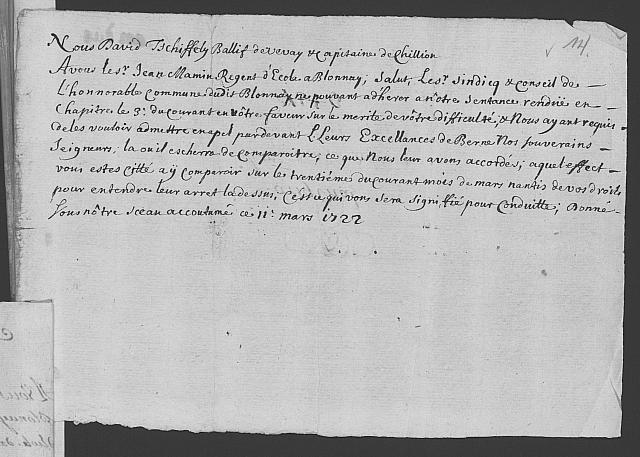 14.
Nous David Tschiffely Ballif de Vevay & Capitaine de Chillion
A vous le Sr. Jean Mamin Regent d'Ecole a Blonnay, Salut, Les Srs. Sindicq & Conseil de
L'honnorable Commune dudit Blonnay ne pouvant adherer a nôtre Sentance rendüe en
Chapitre le 3e. du courant en vôtre faveur sur le merite de vôtre difficulté, & Nous ayant requis
de les vouloir admettre en apel pardevant LLeurs Excellances de Berne Nos Souverains
Seigneurs, la ou il escherra de Comparoitre, ce que Nous leur avons accordés, a quel effect
vous estes Citté a ÿ Comparoir sur le trentiéme du courant mois de mars nantis de vos droits
pour entendre leur arret la dessus, C'est ce qui vous sera Signiffié pour Conduitte, Donné
Sous nôtre Sceau accoutumé ce 11e. mars 1722